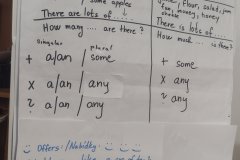 some apples
There are lots of...
How many .... are there?
Singular plural
+ a/an / some
x a/an / any
? a/an / any
flour, salad, jam
money, honey
There is lots of...
How much ... is there?
+ some
x any
? any
Offers: / Nabídky: